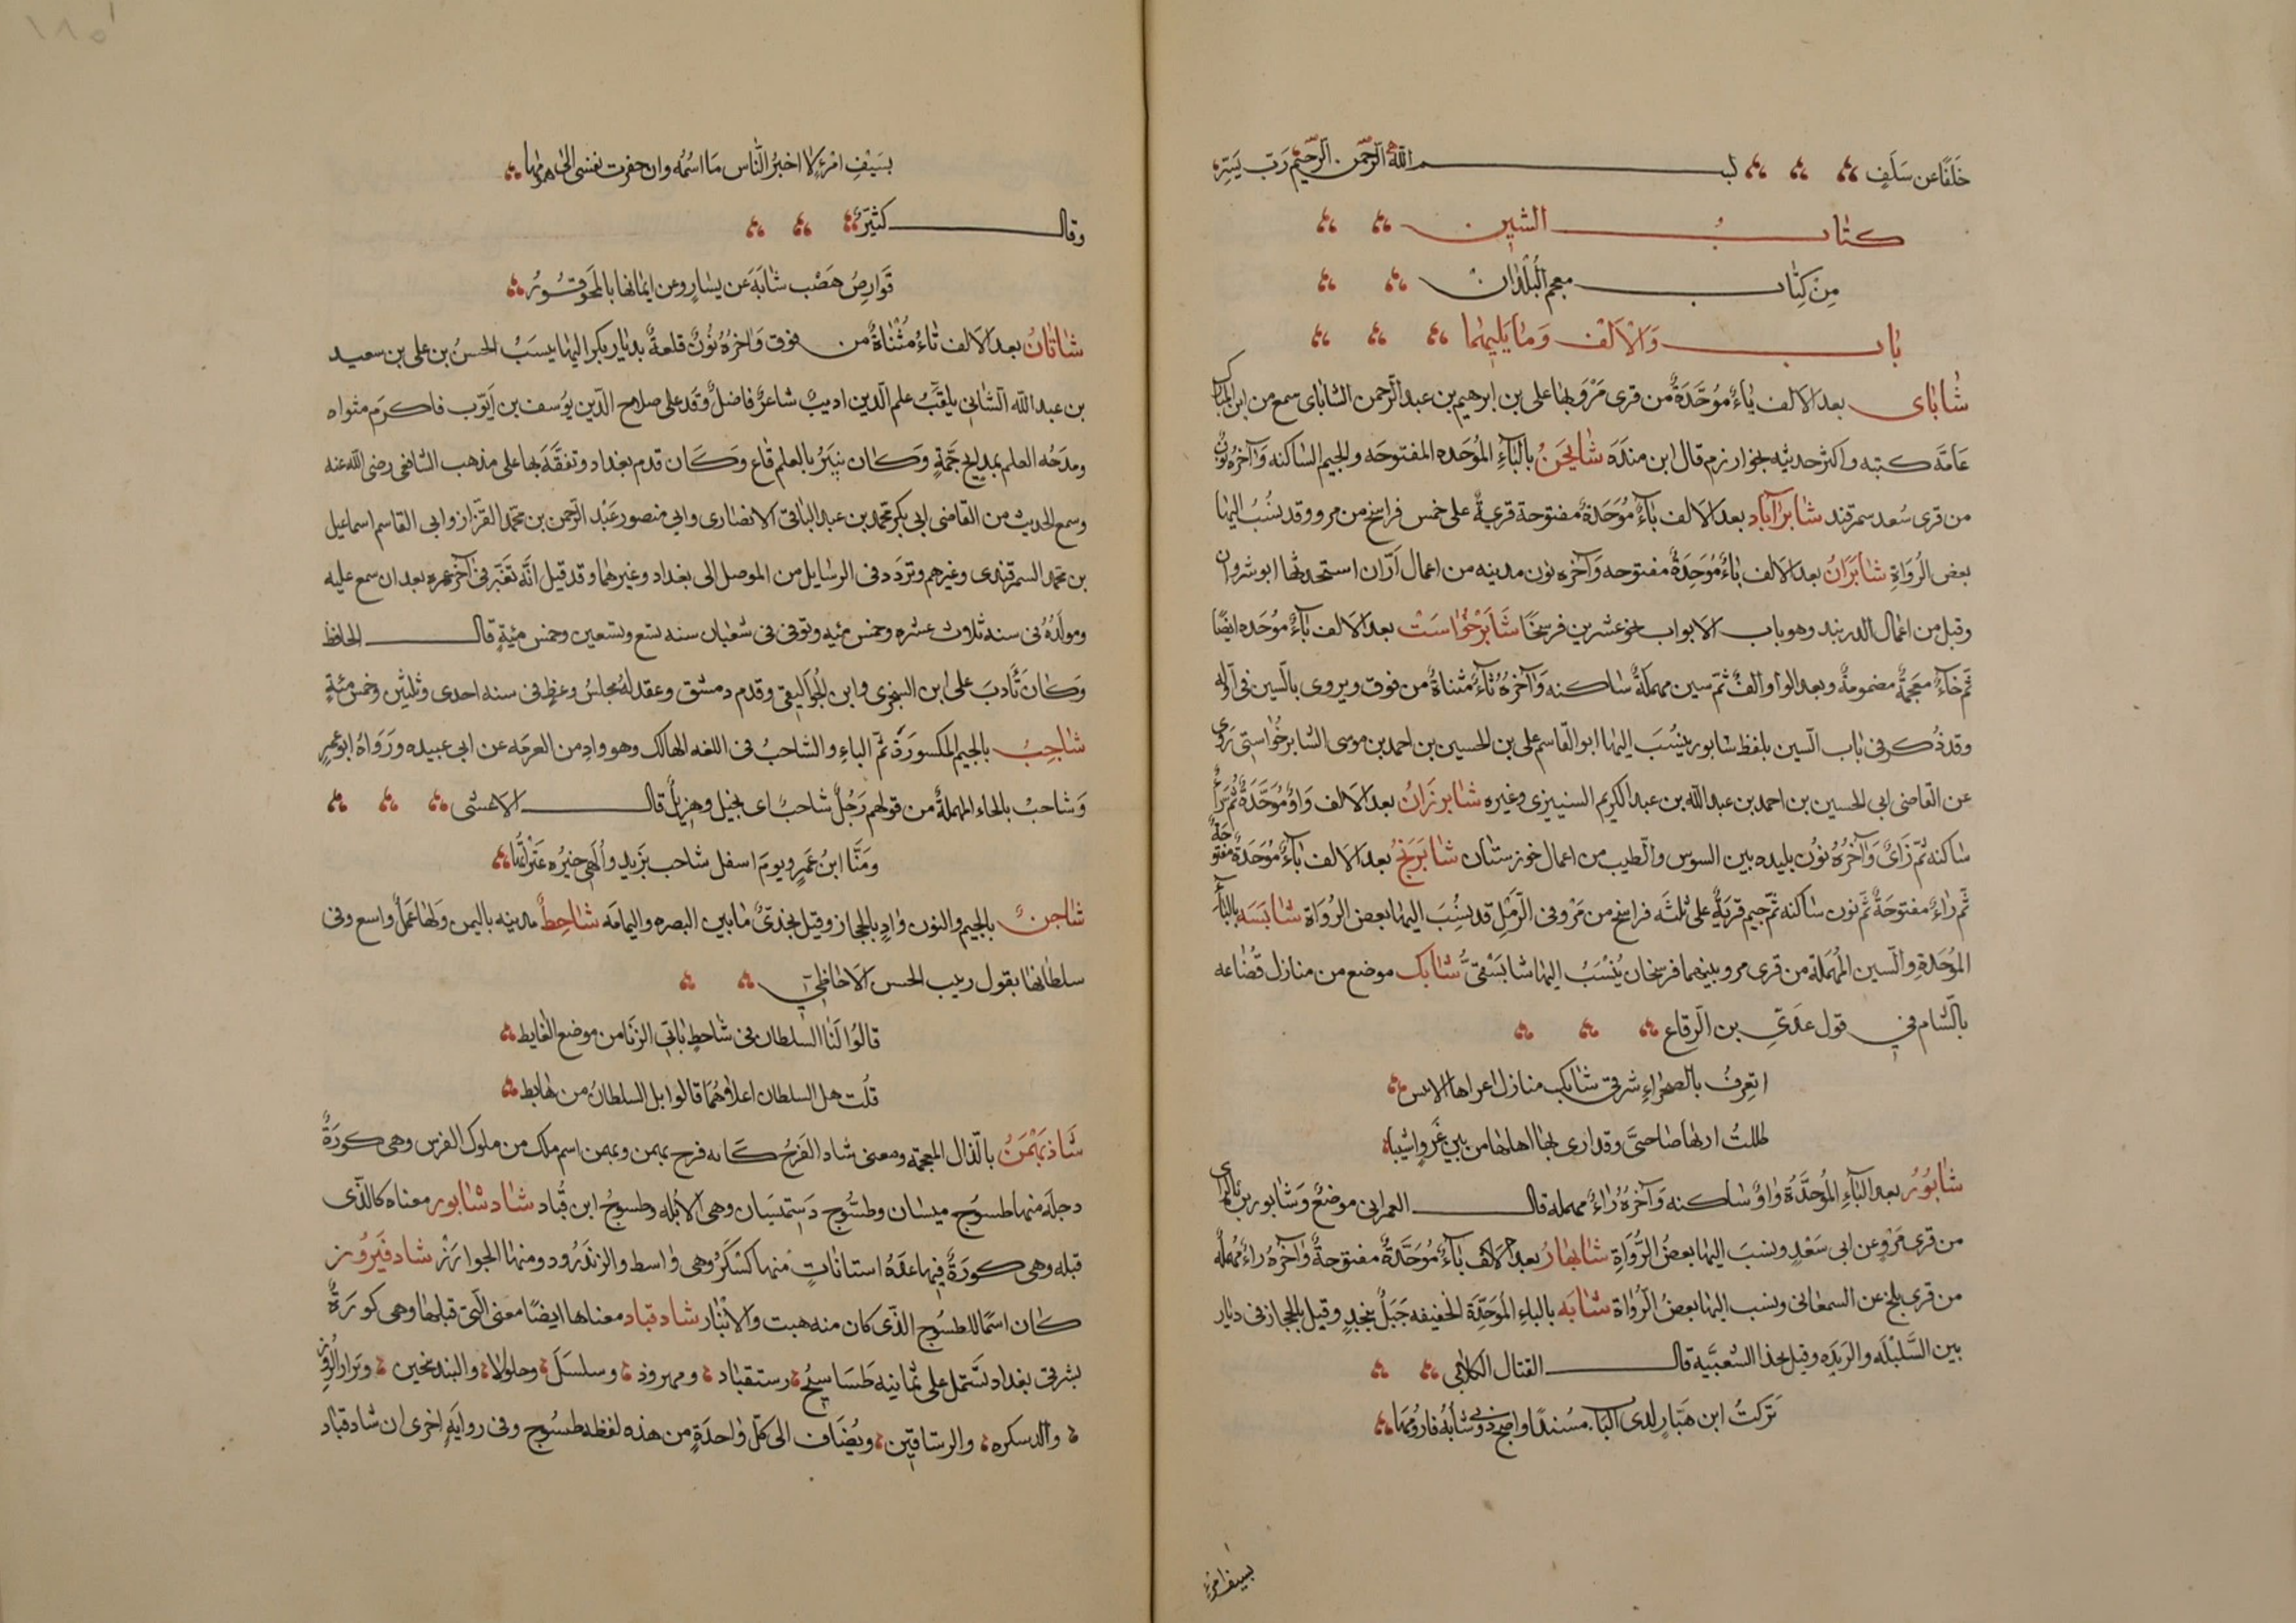 خَلَفًا عن سَلَفٍ بسم الله الرّحمن الرّحيم رَبّ يَسِّر
كتاب الشين
مِن كِتاب معجم البُلْدان
باب وَالْاَلْف وَمَا يَليهمَا
شاباى بعد الالف باءٌ مُوَحَّدَةٌ من قرى مَرْوَ بها على بن ابرهيم بن عبد الرّحمن الشاباى سمع من ابن المبارك
عامّة كتبه واكثر حديثه بخوارزم قال ابن مندَه شابجَنُ بالباءِ الموُحَده المفتوحَه والجيم الساكنه وَآخرُه نونٌ
من قرى سُعد سمرقند شابرآباد بعد الالف باءٌ مُوَحَدَةٌ مفتوحة قريةٌ على خمس فراسخ من مرو وقد يُنسُبُ اليها
بعض الرُوَاةِ شابَرَانُ بعد الالف باءٌ مُوَحَدِةٌ مفتوحه وَآخره نون مدينه من اعمال اَرّان استحدثها انوشروان
وقيل من اعمال الدربند وهو باب الابواب نحو عشرين فرسخًا شَابَرْخُوَاسَتْ بعد الالف باءٌ مُوحَده ايضًا
ثمّ خاءٌ معجمةٌ مضمومةٌ وبعد الواو الفٌ ثمّ سين مهملةٌ ساكنه وَآخرُهُ تاءٌ مثناةٌ من فوق ويروى بالسّين فى اوّله
وقد ذُكر فى باب السّين بلفظ سابور ينُسُبَ اليها ابو القاسم على بن الحسين بن احمد بن موسى الشابرخُواستى رَوى
عن القاضى ابى الحسين بن احمد بن عبد الله بن عبد الكريم السنيزى وغيره شابرزَانُ بعد الالف وَاوٌ مُوَحَّدَةٌ ثُمّ راءٌ
ساكنه ثمّ زَاىٌ وَآخرُهُ نوُن بليده بين السوس والطيب من اعمال خوزستان شابَرَنجُ بعد الالف باءٌ مُوَحَدَةٌ مفتوحةٌ
ثم راءٌ مفتوحَةٌ ثم نون ساكنه ثمّ جيم قريةٌ على ثلثَه فراسخ من مَرْو فى الرّمْلِ قد يُنسُبَ اليها بعض الروَاة شابَسَه بالباءِ
المُوُحَدَةِ والسّين المُهمَلة من قرى مرو بينهما فرسخان يُنْسَبُ اليها شابَسْقىٌّ شابك موضع من منازل قضاعه
بالشام فى قول عدَىّ بن الرقاع
اتعِرفُ بالصحَراءِ شرقىّ شابكٍ منازل
ظللتُ
شابُورُ بعد الباءِ المُوُحَّدَةُ وَاوٌ ساكنه وَآخرُهُ رَاءٌ مهمله قال العمرانى موضعٌ وَشابور
من قرى مَرْوٍ عن ابى سَعْدٍ وينسبَ اليها بعضُ الرُوّاةِ شابهَارُ بعد الالف باءٌ مُوَحَّدَةٌ مفتوحةٌ وَآخرُه راءٌ مُهملَةٌ
من قرى بلخ عن السمعانى وينسب اليها بعضُ الرُوَاة شابَه بالباءِ المُوَحَدّة الخفيفه جَبَلٌ بنجدٍ وقيل بالحجاز فى ديار
بين السَّليْلَه والرَبَذَه وقيل بحذا الشعبّيه قال القتال الكلابى
تَرَكتُ ابن هَبّارٍ لدى الباب مسُندًا واصبَح دُونى شابَةُ فارُومُهَا
بسيف امرءٍ
بسَيْفِ امْرءٍ لا اخبرُ الناس مَا اسْمُه وان حقرت نفسى الىّ همُومها
وقال كثيّرٌ
قَوَارصُ هَضْب شابَةَ عن يسَارٍ وعن ايمانها بالمَحْوِ قورُ
شاتانُ بعد الالف تاءٌ مُثْنَاةٌ من فوق وَآخرُهُ نُونٌ قلعةٌ بديار بكر اليها ينسَبُ الحَسنُ بن على بن سعيد
بن عبد الله الشاتانى يلقّبُ علم الدّين اديبٌ شاعرٌ فاضلٌ وَفَد على صلاح الدّين يوُسف بن ايّوب فاكرَم مثواه
ومدَحُه العلم بمدايح جَمَّةٍ وكان يَتبَرُ بالعلم قاع وكَان قدم بغداد وتفقَّه بها على مذهب الشافعى رضى الله عنه
وسمع الحديث من القاضى ابى بكر محمّد بن عبد الباقى الانصَارى وابى منصور عَبْد الرّحمن بن محمّد القزّاز وابى القاسم اسماعيل
بن محمّد السمرقندى وغيرهم وتردّد فى الرسايل من الموصل الى بغداد وغيرها وقد قيل انَّه تغيَّر فى آخر عمره بعد ان سمع عليه
ومولدُهُ فى سنه ثلاث عشره وخمس مئيه وتوفى فى شعبان سنه تسع وتسعين وخمس مئيةٍ قال الحافظ
وكان تأدبَ على ابن الشجرى وابن الجُواَليقى وقدم دمشق وعقد لهُ مجلسُ وعظٍ فى سنه احدى وثلثيّن وخمس مئيةٍ
شاجبُ بالجيم المكسورَةُ ثمّ الباء والشاجبُ فى اللغه الهالك وهو وادٍ من العرمَه عن ابى عبيده وَرَوَاهُ ابو عمروٍ
وَشاحبُ بالحاء المهملةُ من قولهم رَجُلٌ شاحبُ اى نحيل وهزيل قال الاعشى
ومَنَّا ابنُ عَمرٍو يومَ اسفل شاحب يزَيد وَالهى خيُره عَثراتُها
شاجنُ بالجيم والنون وادٍ بالحجاز وقيل بنجدىٌّ مَا بين البصره واليمامَه شاحِطٌ مدينه باليمن وَلهَا عَملٌ واسع وفى
سلطانها يقول ربيب الحسن الاحاظى
قالوُا لَنَا السلطان فى شاحطٍ يأتى الزنَا من موضع الغايط
قُلت هل السلطان اعلاهُمَا قالوا بل السلطانُ من هابط
شاذبَهْمَنُ بالذّال المعجمة ومعنى شاد الفَرَحُ كأنه فرح بهمن وبهمن اسم ملك من ملوك الفرس وهى كورَةٌ
دجله منها طسوَج ميسان وطسُّوج دَستميسَان وهى الاُبُلّه وطسوجُ ابن قُباد شاد شابور معناه كالّذى
قبله وهى كورَةٌ فيها عدةُ استانات منها كَسْكَرُ وهى واسط والزندَرُود ومنها الجوازز شاد فَيرُوز
كان اسمًا للطسوُج الذّى كان منه هيت والانْبار شاد قباد معناها ايضًا معنى الّتى قبلها وهى كورَةٌ
بشرقى بغداد تشتمل على ثمانيه طسَاسيجُ رستقباد ومهروذ وسلسَلَ وجلولا والبندنجين وبراز الروز
والدسكره والرستاقيَن ويُضاف الى كلّ وَاحدَةٍ من هذه لفظه طسُوج وفى روايَه اخرى ان شاد قباد